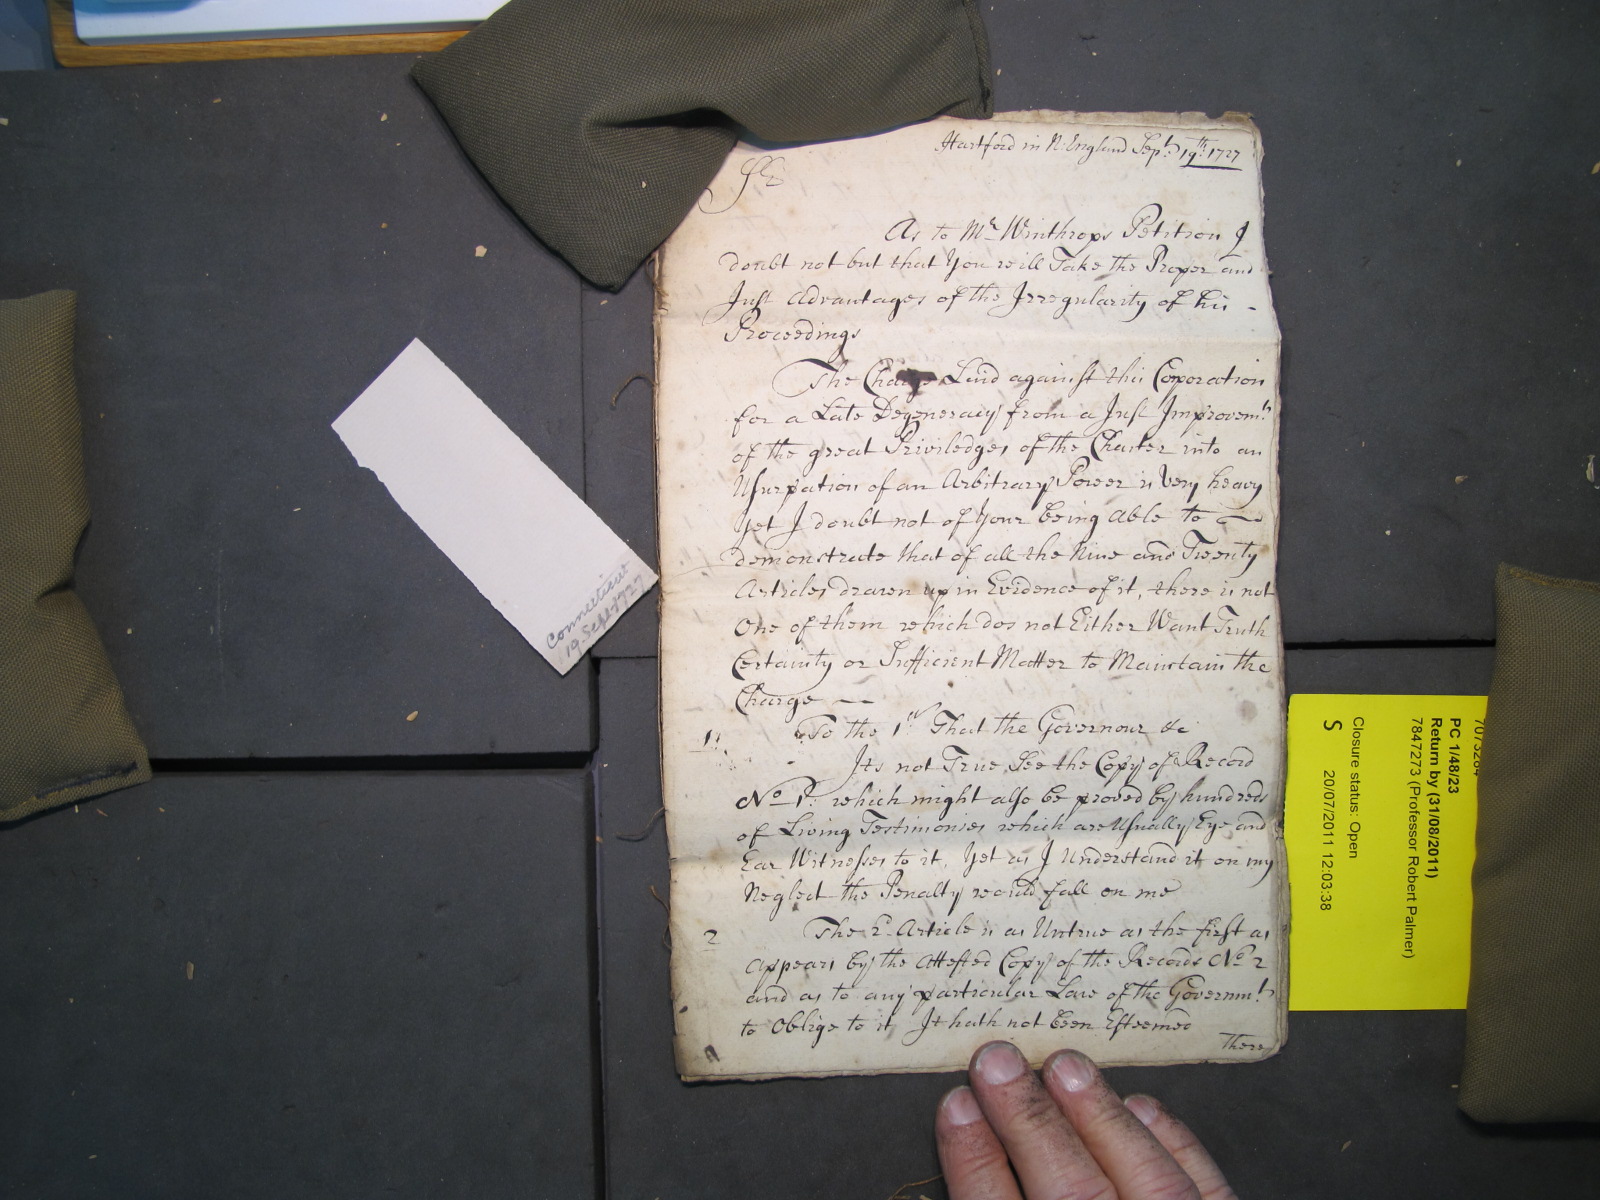 Hartford in N. England Sept. 19th. 1727
Sr
As to Mr Winthrops Petition I
doubt not but that You will Take the Proper and
Just Advantages of the Irregularity of his -
Proceedings
The Charge Laid against this Corporation
for a Late Degeneracy from a Just Improvemt.
of the great Priviledges of the Charter into an
Usurpation of an Arbitrary Power is Very heavy
Yet I doubt not of Your being Able to —
demonstrate that of all the Nine and Twenty
Articles drawn up in Evidence of it, there is not
One of them which dos not Either Want Truth
Certainty or Sufficient Matter to Maintain the
Charge —
1. To the 1st That the Governour &c
Its not True See the Copy of Record
No 1st. which might also be proved by hundreds
of Living Testimonies which are Usually Eye and
Ear Witnesses to it, Yet as I Understand it on my
Neglect the Penalty would fall on me
2 The 2d Article is as Untrue as the first as
Appears by the Attested Copy of the Records No 2
and as to any particular Law of the Governmt.
to Oblige to it It hath not been Esteemed
There
Connecticut
19 Sept 1727
7073284
PC 1/48/23
Return by (31/08/2011)
7847273 (Professor Robert Palmer)
Closure status: Open
S 20/07/2011 12:03:38